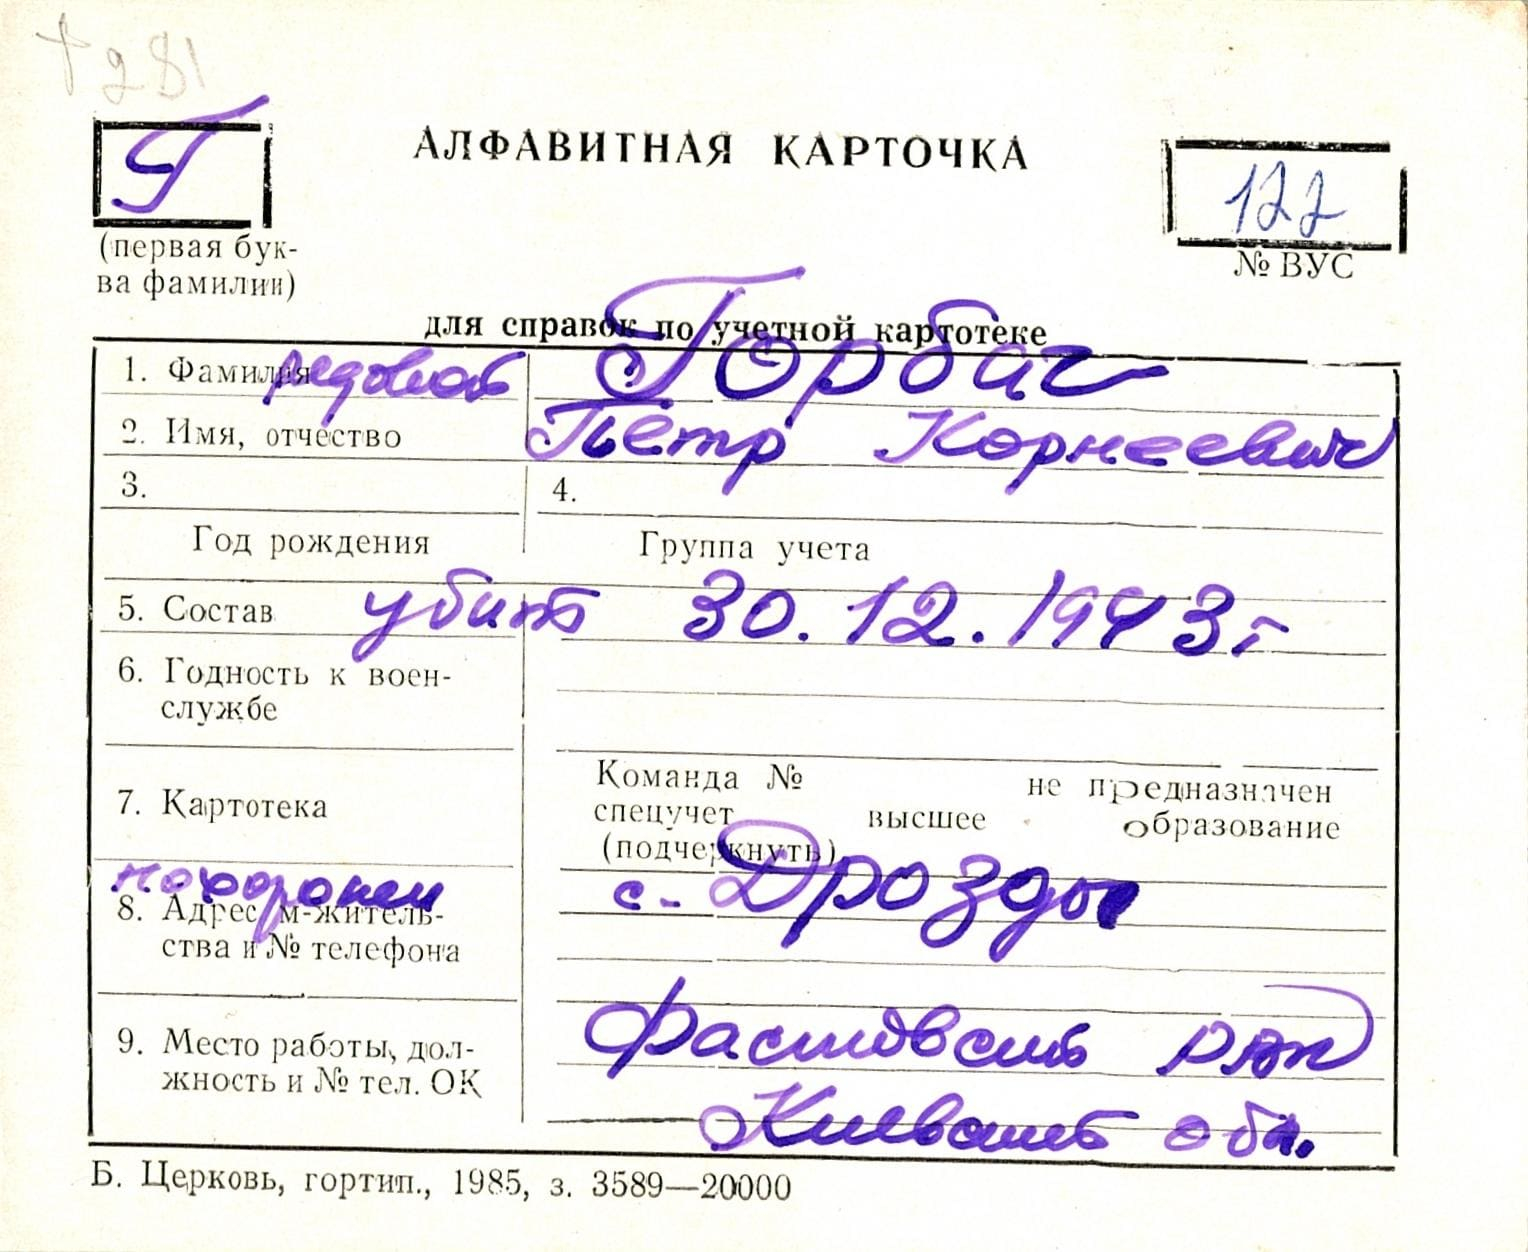 + 281
Г
АЛФАВИТНАЯ КАРТОЧКА
122
(первая бук-
ва фамилии)
№ ВУС
для справок по учетной картотеке
1. Фамилия рядовой Горбач
2. Имя, отчество Пётр Корнеевич
3. 4.
Год рождения Группа учета
5. Состав убит 30.12.1943 г
6. Годность к воен-
службе
7. Картотека
Команда № не предназначен
спецучет высшее образование
(подчеркнуть)
похоронен с. Дрозды
8. Адрес м-житель-
ства и № телефона
Фастовский р-он
9. Место работы, дол-
жность и № тел. ОК
Киевской обл.
Б. Церковь, гортип., 1985, з. 3589—20000